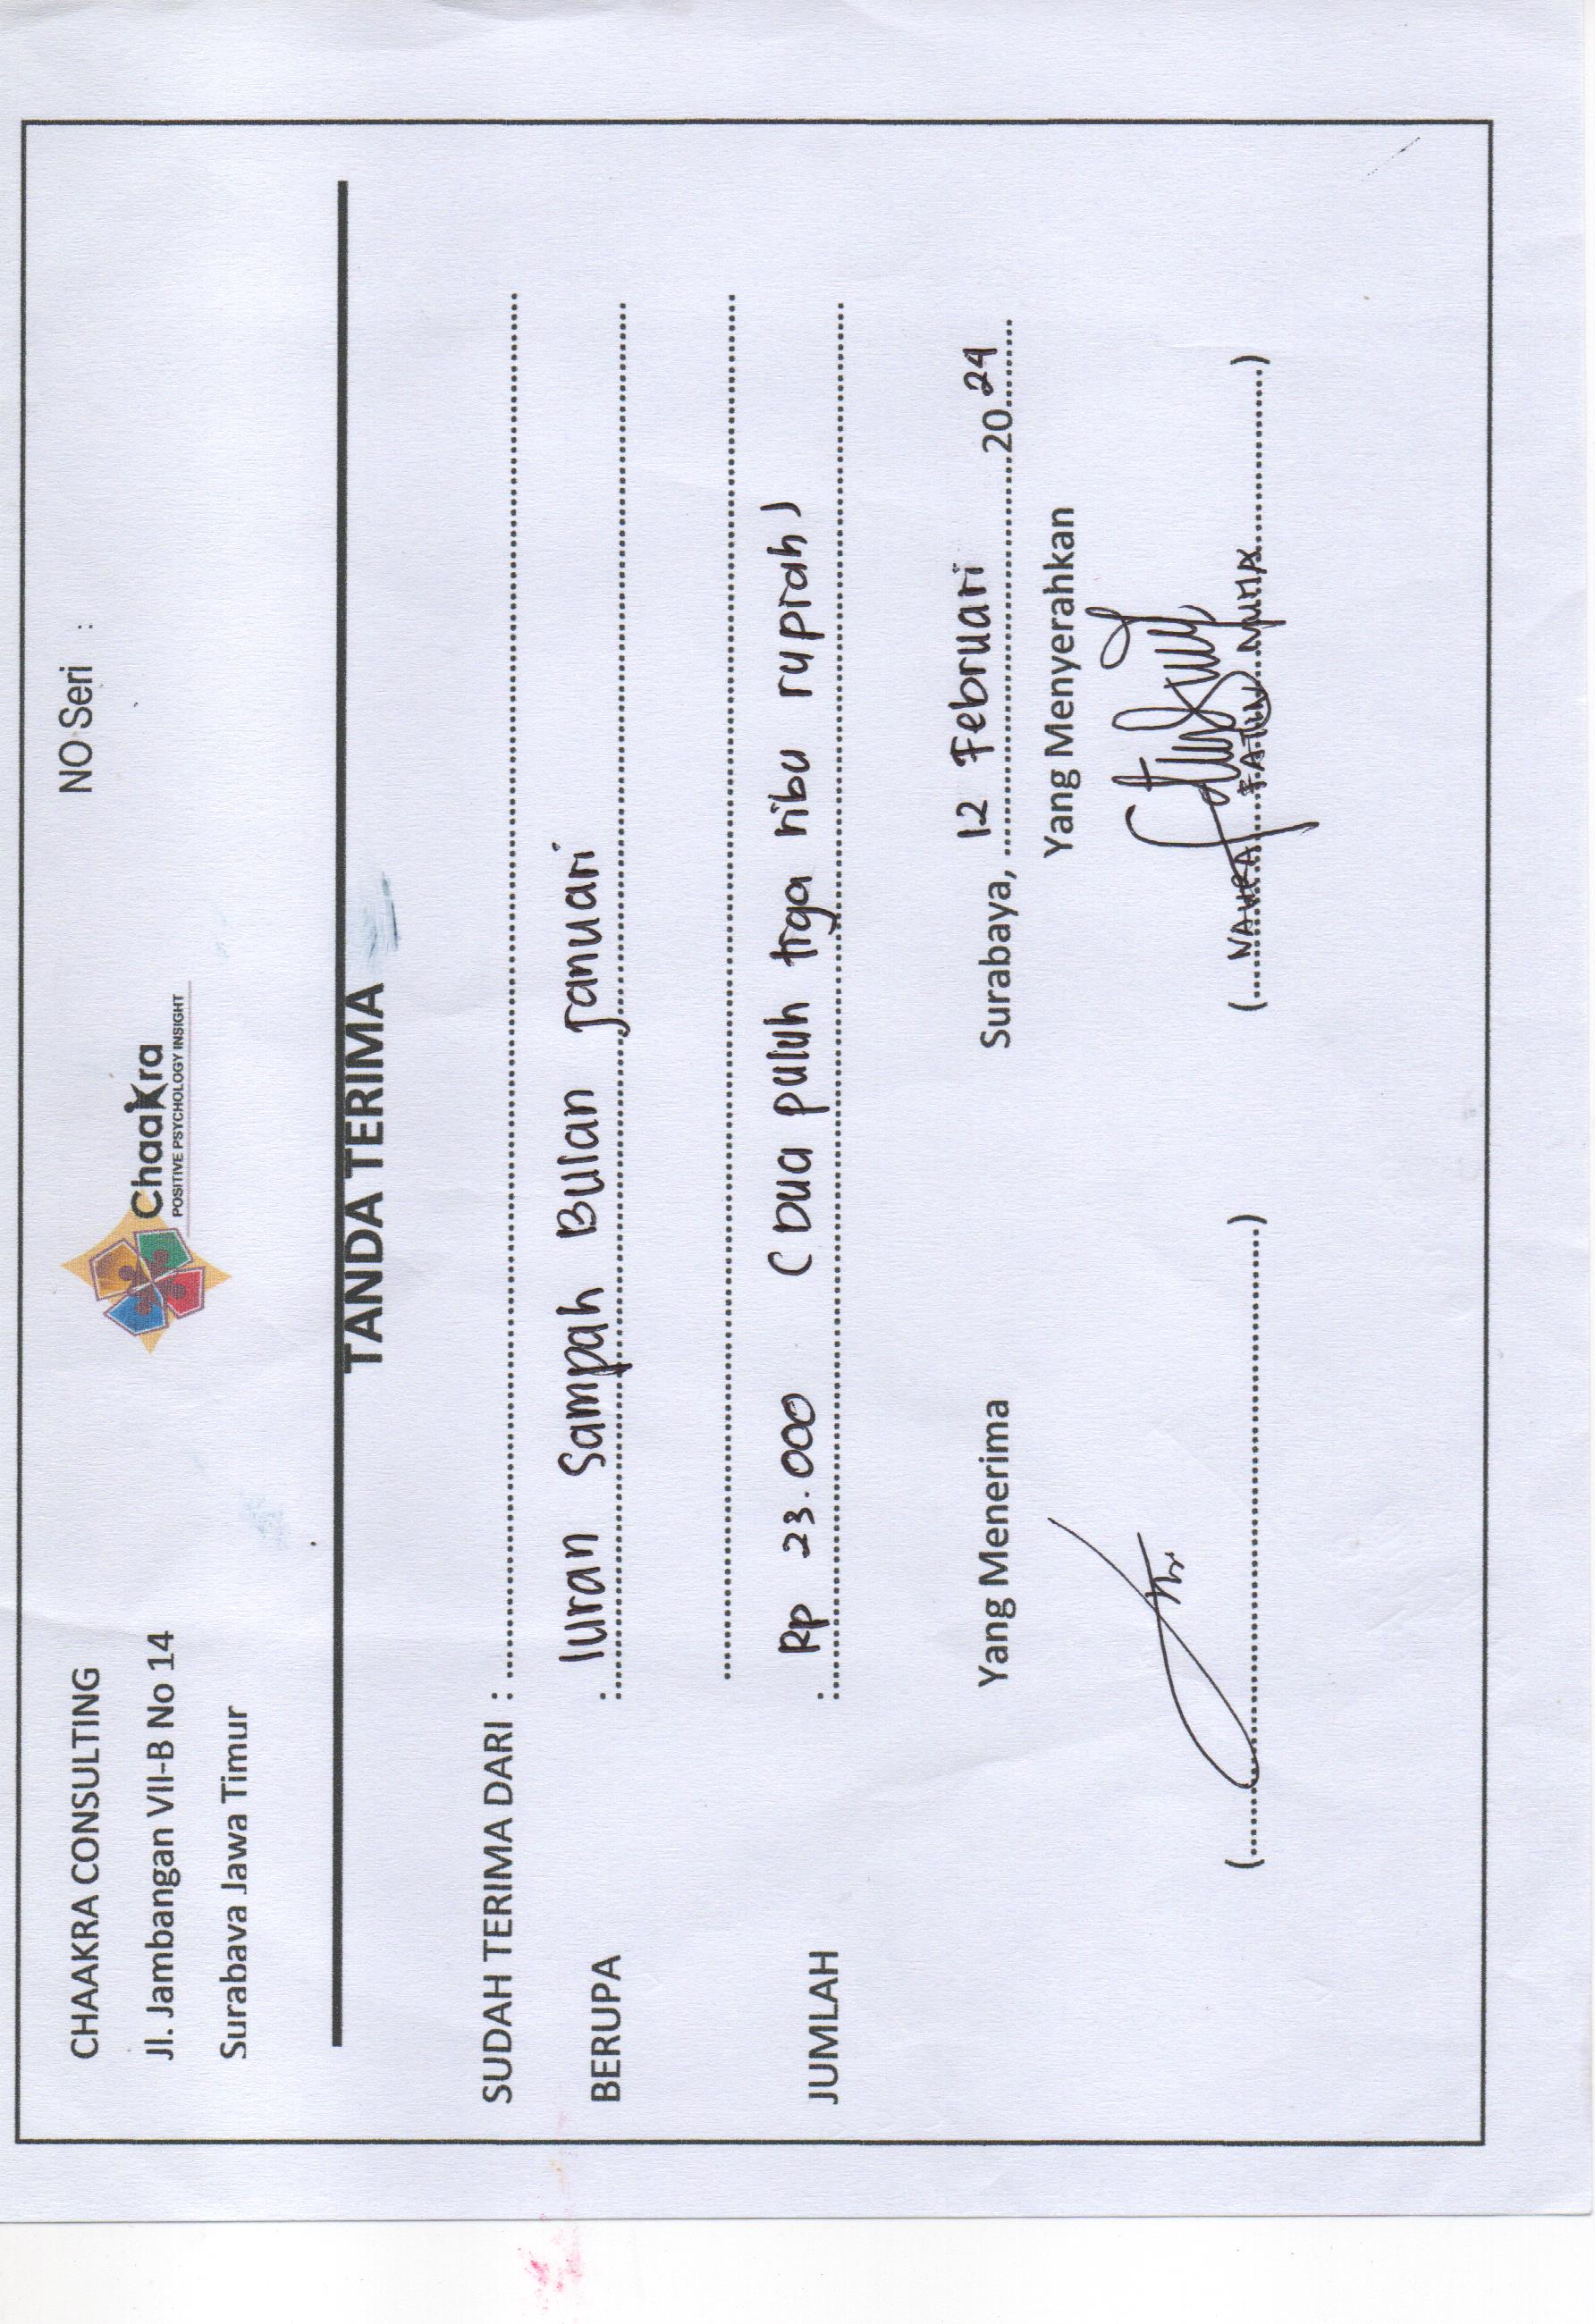 CHAAKRA CONSULTING
Jl. Jambangan VII-B No 14
Surabaya Jawa Timur
Chaakra
POSITIVE PSYCHOLOGY INSIGHT
NO Seri :
TANDA TERIMA
SUDAH TERIMA DARI :
BERUPA : Iuran Sampah Bulan Januari
JUMLAH : Rp 23.000 (Dua puluh tiga ribu rupiah)
Surabaya, 12 Februari 2024
Yang Menerima
Yang Menyerahkan
(....................) (NAHRA FATIN NUHA)